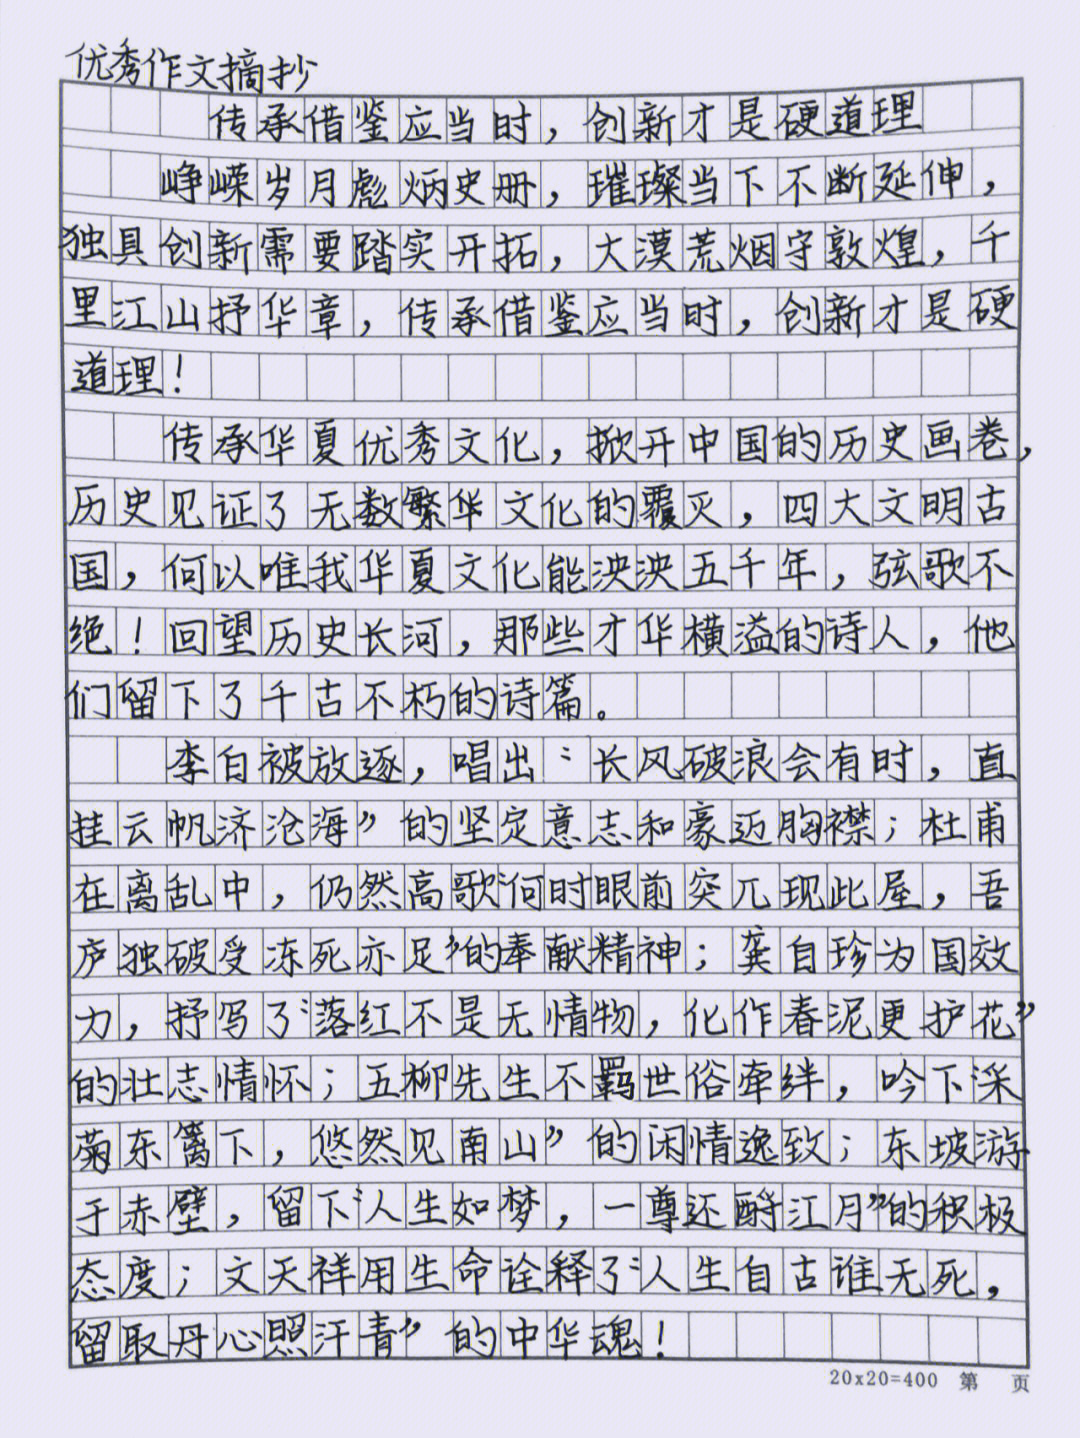 优秀作文摘抄
传承借鉴应当时，创新才是硬道理
峥嵘岁月彪炳史册，璀璨当下不断延伸，
独具创新需要踏实开拓，大漠荒烟守敦煌，千
里江山抒华章，传承借鉴应当时，创新才是硬
道理！
传承华夏优秀文化，掀开中国的历史画卷，
历史见证了无数繁华文化的覆灭，四大文明古
国，何以唯我华夏文化能泱泱五千年，弦歌不
绝！回望历史长河，那些才华横溢的诗人，他
们留下了千古不朽的诗篇。
李白被放逐，唱出“长风破浪会有时，直
挂云帆济沧海”的坚定意志和豪迈胸襟；杜甫
在离乱中，仍然高歌“何时眼前突兀现此屋，吾
庐独破受冻死亦足”的奉献精神；龚自珍为国效
力，抒写了“落红不是无情物，化作春泥更护花”
的壮志情怀；五柳先生不羁世俗牵绊，吟下采
菊东篱下，悠然见南山”的闲情逸致；东坡游
于赤壁，留下“人生如梦，一尊还酹江月”的积极
态度；文天祥用生命诠释了“人生自古谁无死，
留取丹心照汗青”的中华魂！
20x20=400 第 页